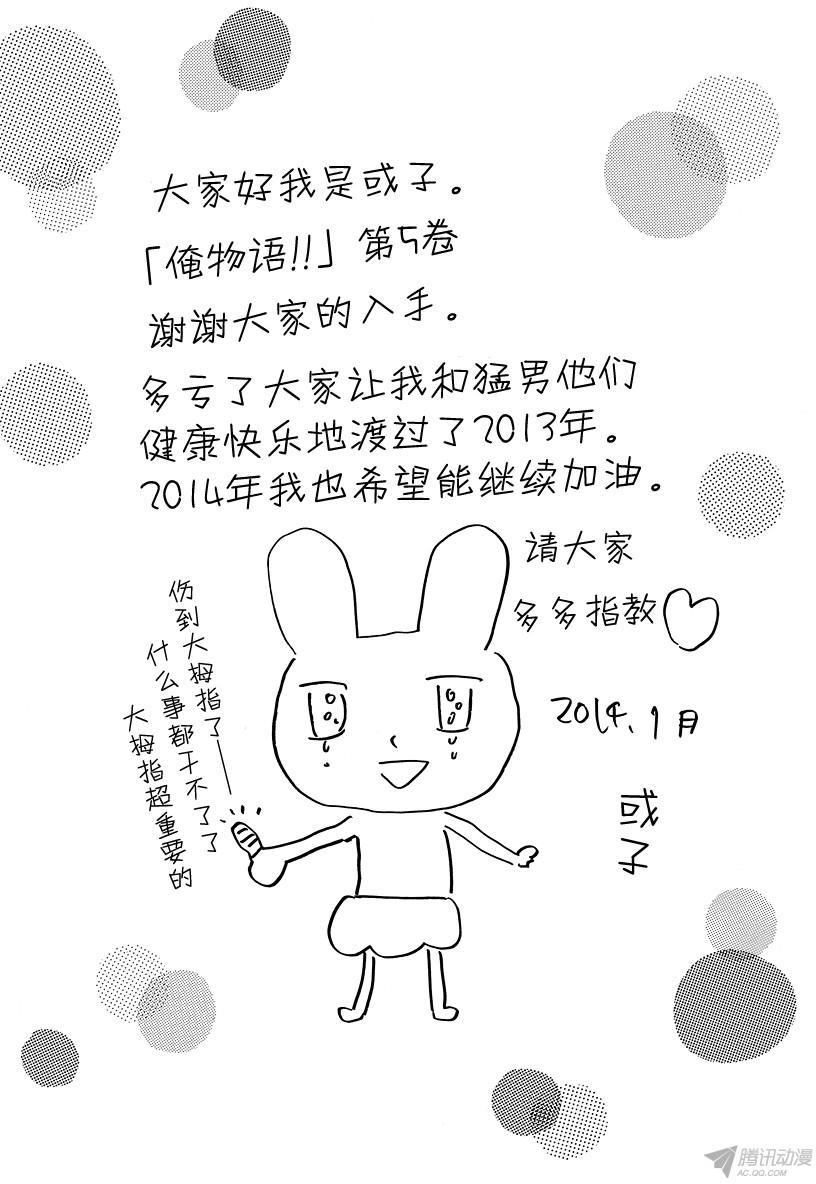 大家好我是或子。
「俺物语!!」第5卷
谢谢大家的入手。
多亏了大家让我和猛男他们
健康快乐地渡过了2013年。
2014年我也希望能继续加油。
请大家
多多指教♡
伤到大拇指了——
什么事都干不了了
大拇指超重要的
2014.1月
或子
腾讯动漫
AC.QQ.COM